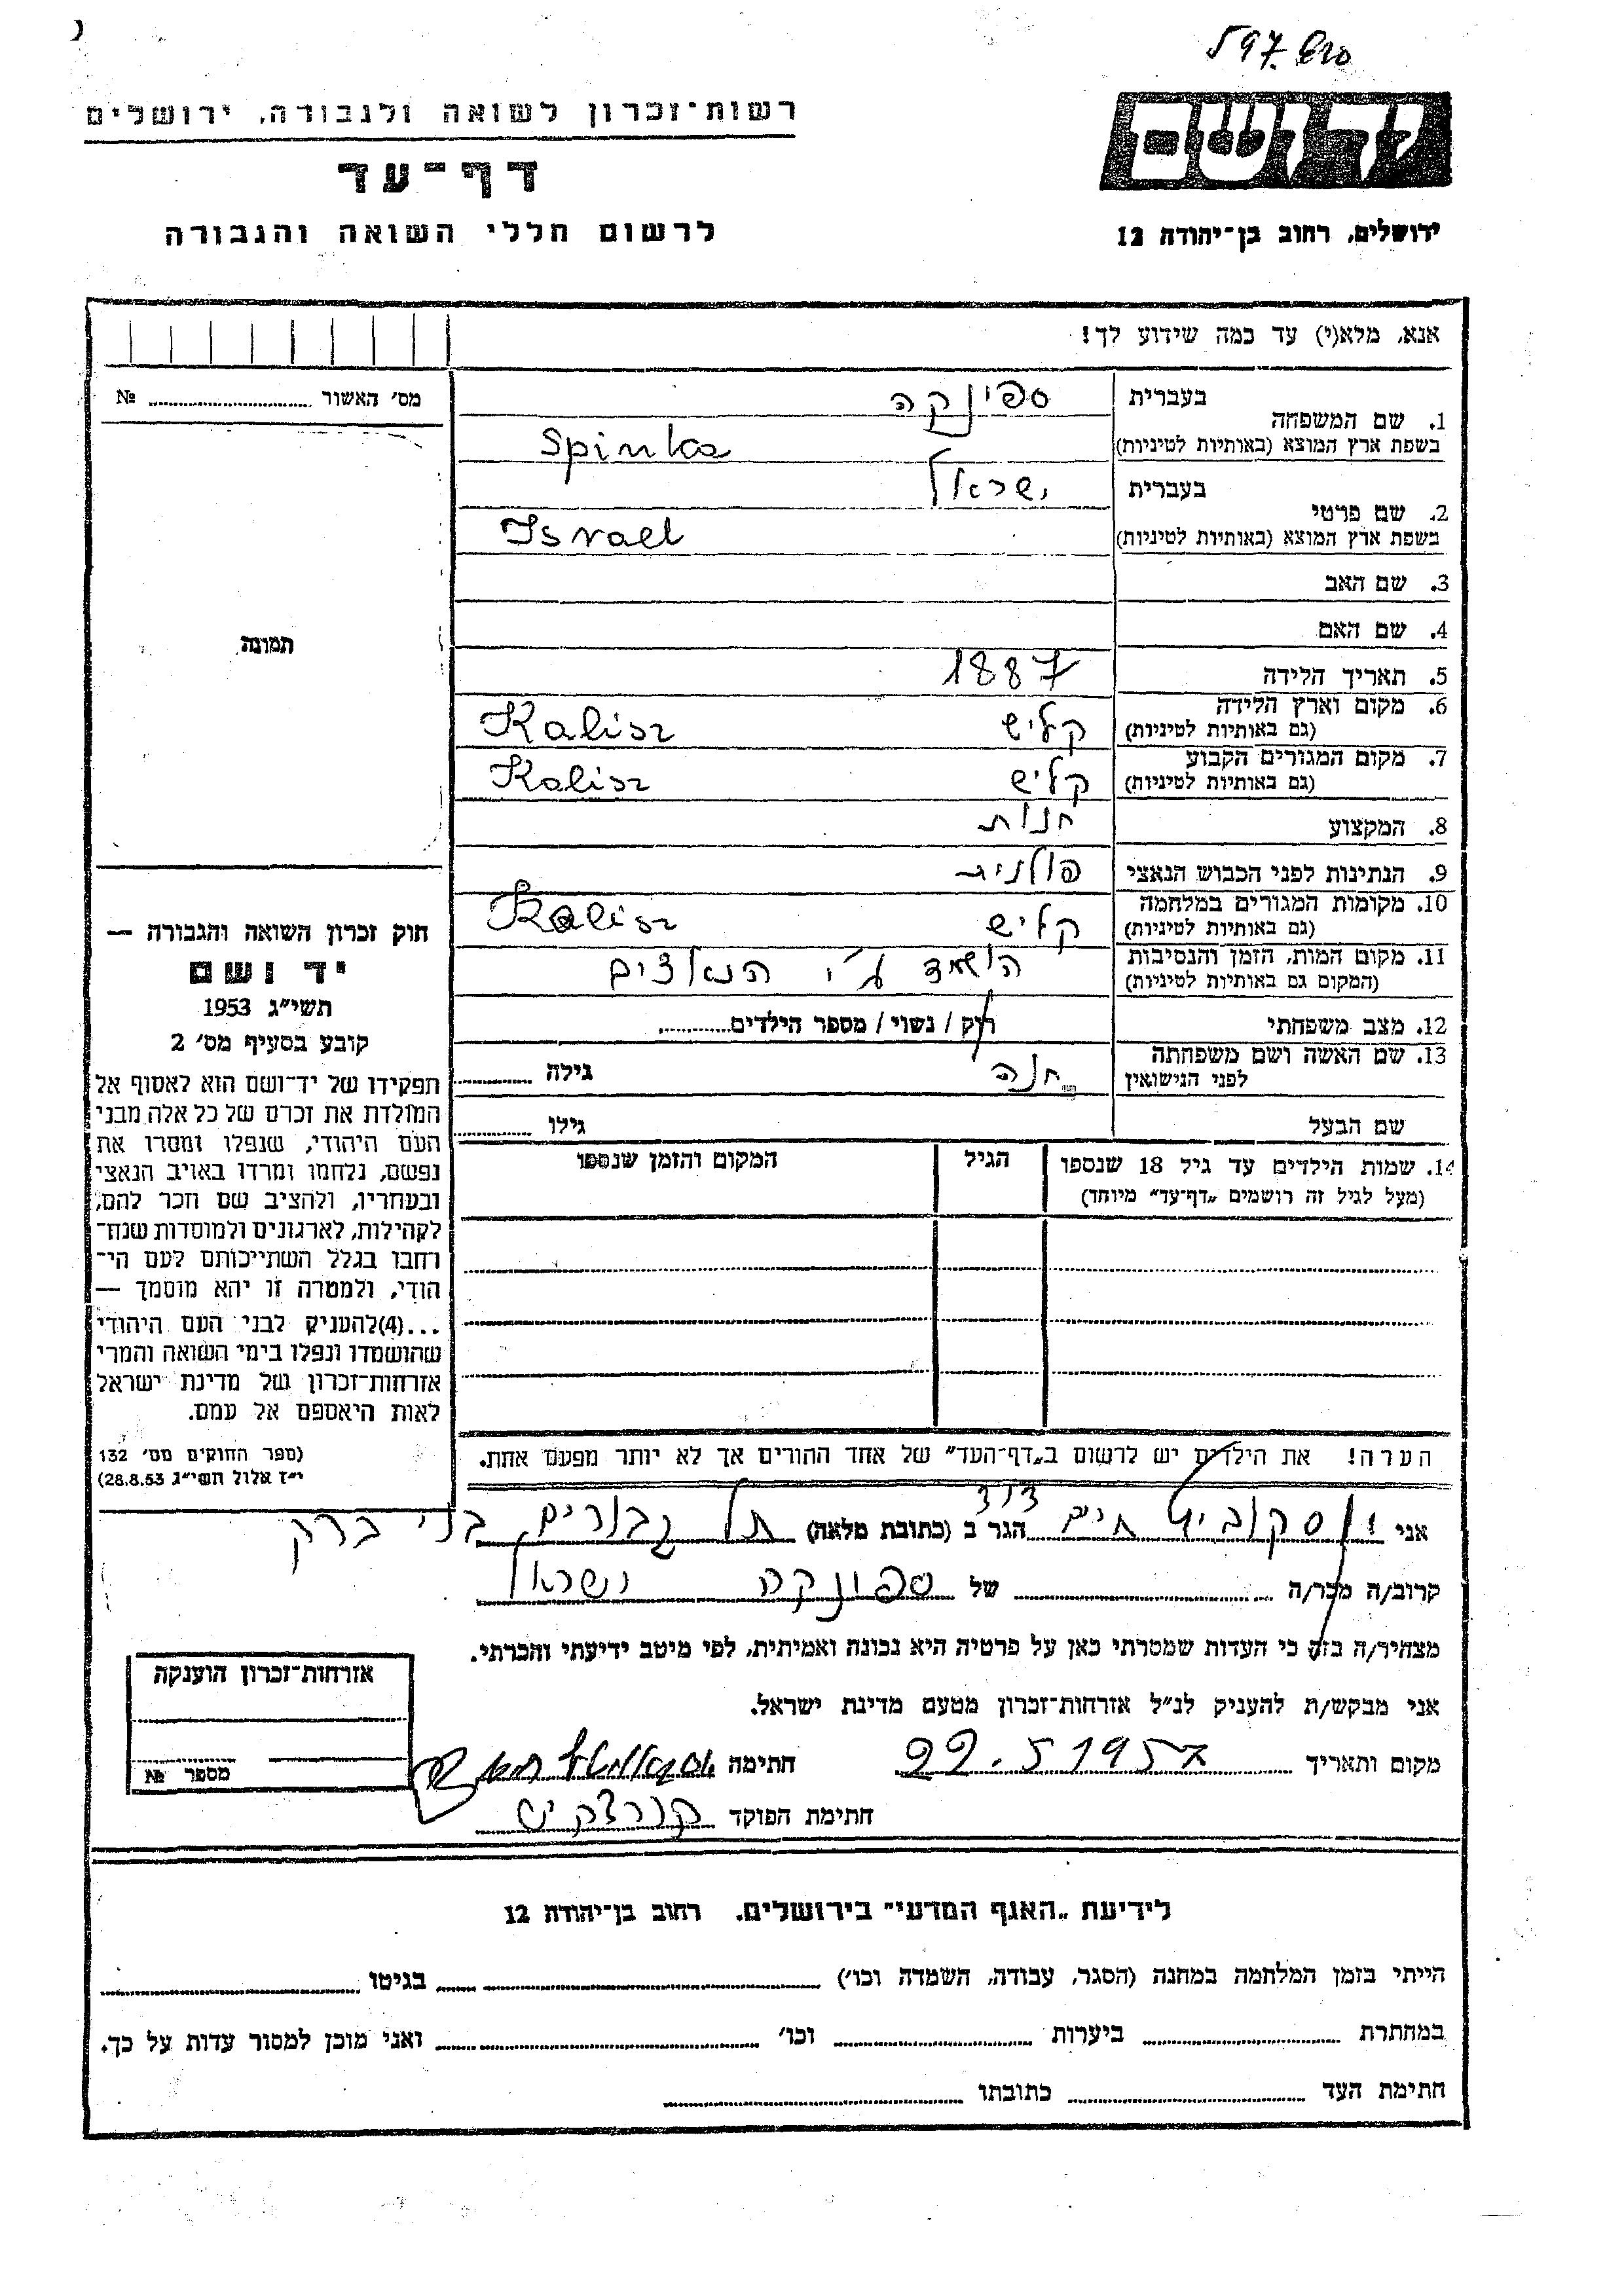 597
רשות־זכרון לשואה ולגבורה, ירושלים
דף־עד
לרשום חללי השואה והגבורה
יד ושם
ירושלים, רחוב בן־יהודה 12
אנא, מלא(י) עד כמה שידוע לך!
מס׳ האשור № 
1. שם המשפחה בעברית ספינקה
בשפת ארץ המוצא (באותיות לטיניות) Spinka
2. שם פרטי בעברית ישראל
בשפת ארץ המוצא (באותיות לטיניות) Israel
3. שם האב
4. שם האם
תמונה
5. תאריך הלידה 1887
6. מקום וארץ הלידה (גם באותיות לטיניות) קליש Kalisz
7. מקום המגורים הקבוע (גם באותיות לטיניות) קליש Kalisz
8. המקצוע חנות
9. הנתינות לפני הכבוש הנאצי פולנית
10. מקומות המגורים במלחמה (גם באותיות לטיניות) קליש Kalisz
11. מקום המות, הזמן והנסיבות (המקום גם באותיות לטיניות) הושמד ע״י הנאצים
12. מצב משפחתי רוק / נשוי / מספר הילדים
13. שם האשה ושם משפחתה לפני הנישואין חנה גילה
שם הבעל גילו
14. שמות הילדים עד גיל 18 שנספו הגיל המקום והזמן שנספו
(מעל לגיל זה רושמים „דף־עד״ מיוחד)
הערה! את הילדים יש לרשום ב„דף־העד״ של אחד ההורים אך לא יותר מפעם אחת.
חוק זכרון השואה והגבורה —
יד ושם
תשי״ג 1953
קובע בסעיף מס׳ 2
תפקידו של יד־ושם הוא לאסוף אל
המולדת את זכרם של כל אלה מבני
העם היהודי, שנפלו ומסרו את
נפשם, נלחמו ומרדו באויב הנאצי
ובעחריו, ולהציב שם וזכר להם,
לקהילות, לארגונים ולמוסדות שנח־
רחבו בגלל השתייכותם לעם הי־
הודי, ולמטרה זו יהא מוסמך —
...(4)להעניק לבני העם היהודי
שהושמדו ונפלו בימי השואה והמרי
אזרחות־זכרון של מדינת ישראל
לאות היאספם אל עמם.
(ספר החוקים מס׳ 132
י״ז אלול תשי״ג 28.8.53)
אני חיים דוד הגר ב (כתובת מלאה) תל גבורים, בני ברק
קרוב/ה מכר/ה של ספינקה ישראל
מצהיר/ה בזה כי העדות שמסרתי כאן על פרטיה היא נכונה ואמיתית, לפי מיטב ידיעתי והכרתי.
אני מבקש/ת להעניק לנ״ל אזרחות־זכרון מטעם מדינת ישראל.
מקום ותאריך 22.5 1957 חתימה
חתימת הפוקד
אזרחות־זכרון הוענקה
מספר №
לידיעת „האגף המדעי״ בירושלים. רחוב בן־יהודה 12
הייתי בזמן המלחמה במחנה (הסגר, עבודה, השמדה וכו׳) בגיטו
במחתרת ביערות וכו׳ ואני מוכן למסור עדות על כך.
חתימת העד כתובתו